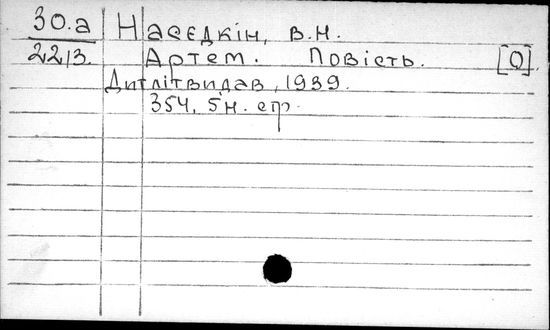 30.а Насєдкін, В.Н.
2213 Артем. Повість. [0]
Дитлітвидав, 1939.
354, 5н. стр.